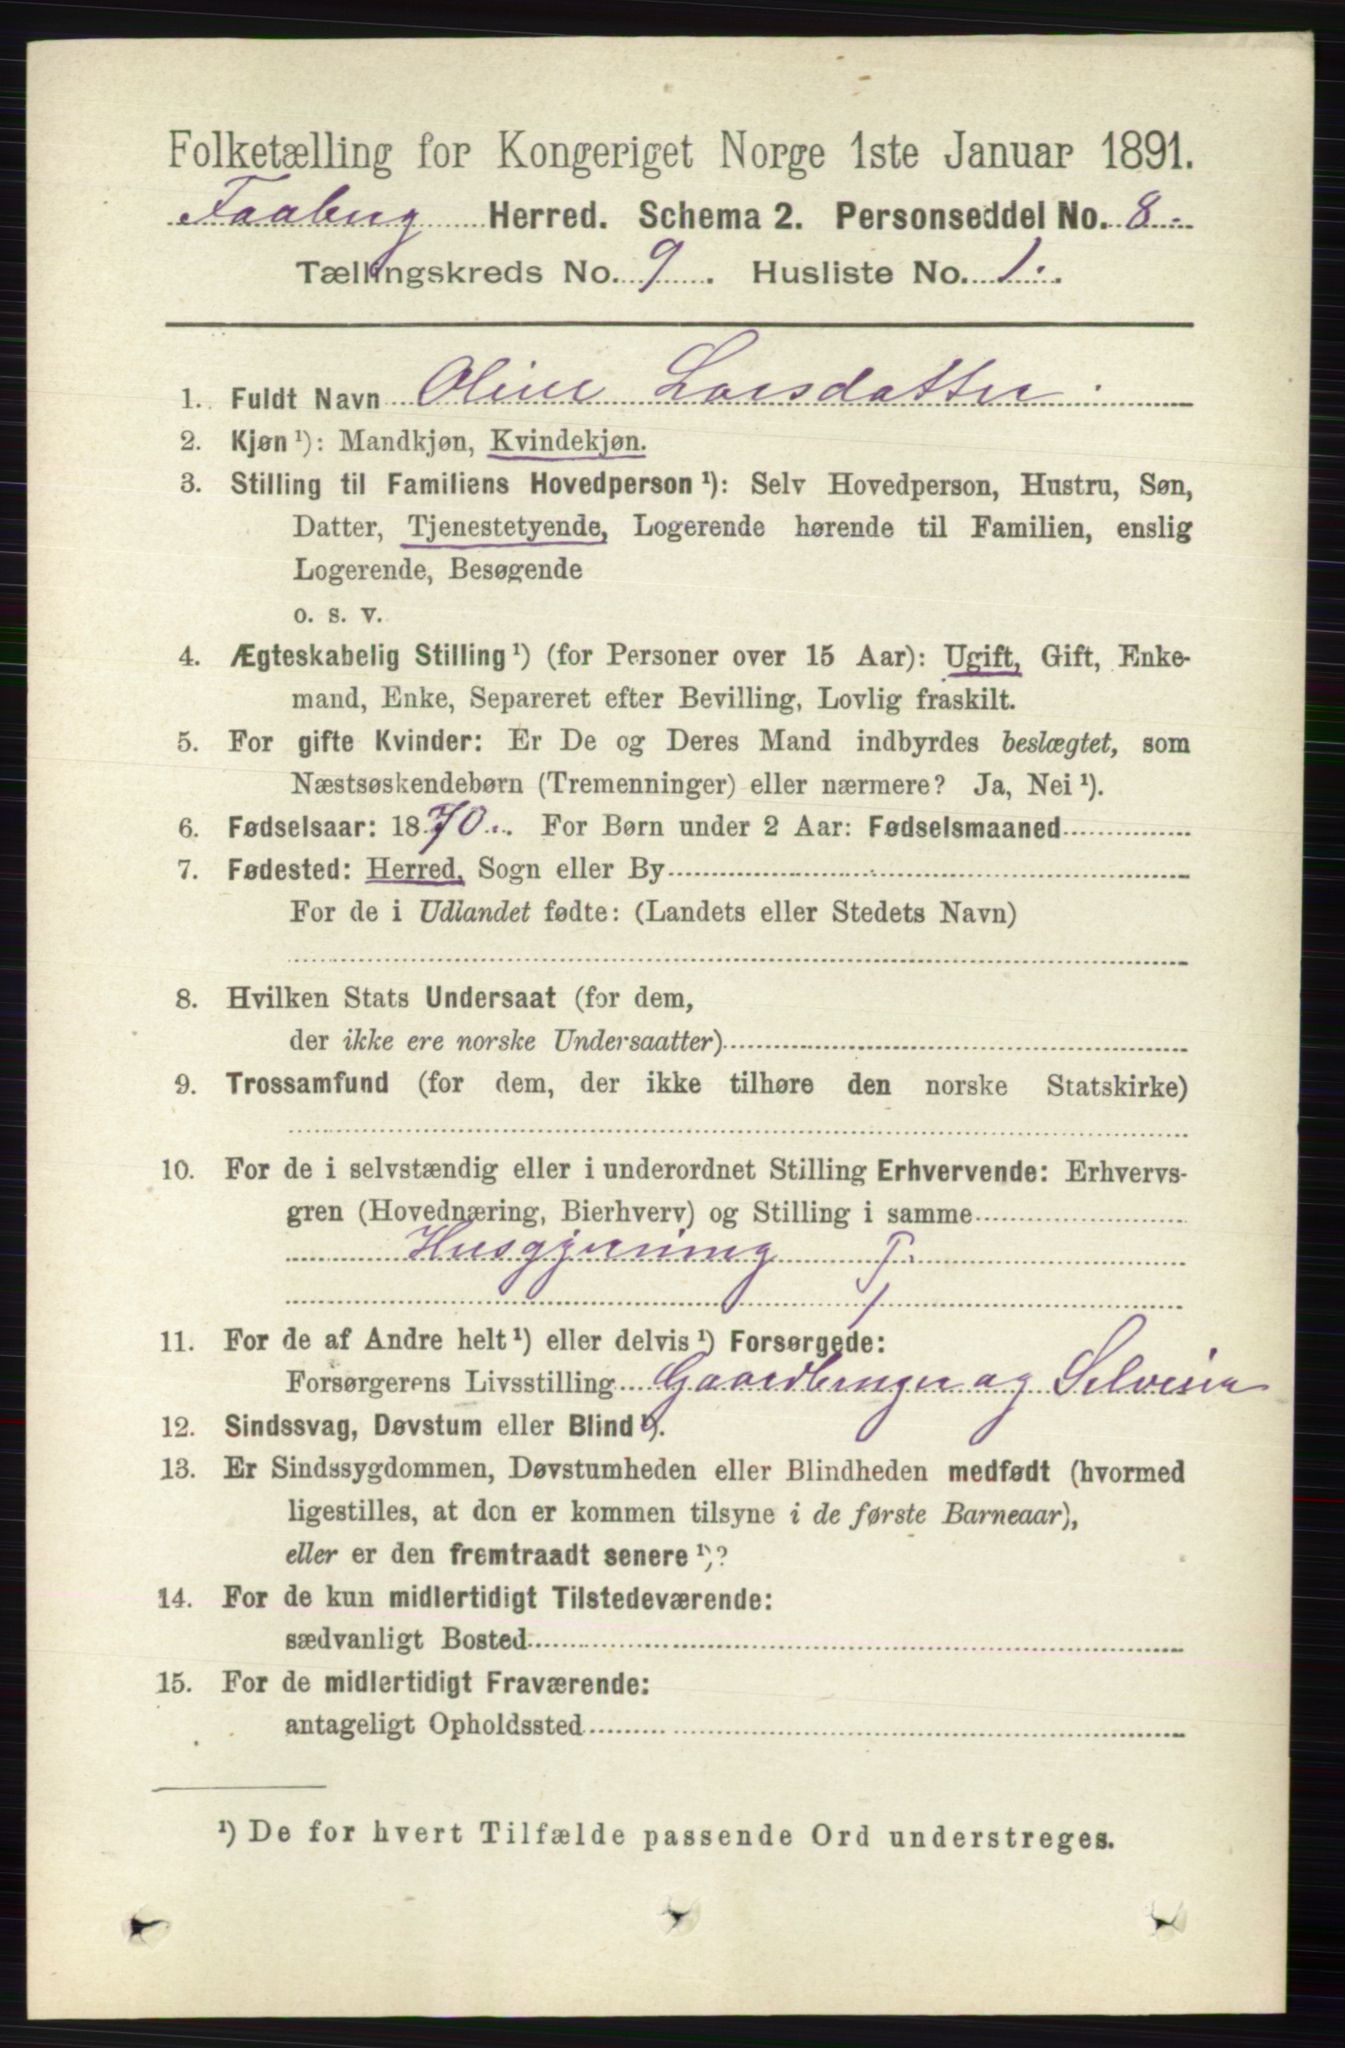 Folketælling for Kongeriget Norge 1ste Januar 1891.
Faaberg Herred. Schema 2. Personseddel No. 8.
Tællingskreds No. 9. Husliste No. 1.
1. Fuldt Navn Oline Larsdatter.
2. Kjøn ¹): Mandkjøn, Kvindekjøn.
3. Stilling til Familiens Hovedperson ¹): Selv Hovedperson, Hustru, Søn,
Datter, Tjenestetyende, Logerende hørende til Familien, enslig
Logerende, Besøgende
o. s. v.
4. Ægteskabelig Stilling ¹) (for Personer over 15 Aar): Ugift, Gift, Enke-
mand, Enke, Separeret efter Bevilling, Lovlig fraskilt.
5. For gifte Kvinder: Er De og Deres Mand indbyrdes beslægtet, som
Næstsøskendebørn (Tremenninger) eller nærmere? Ja, Nei ¹).
6. Fødselsaar: 1870. For Børn under 2 Aar: Fødselsmaaned
7. Fødested: Herred, Sogn eller By
For de i Udlandet fødte: (Landets eller Stedets Navn)
8. Hvilken Stats Undersaat (for dem,
der ikke ere norske Undersaatter)
9. Trossamfund (for dem, der ikke tilhøre den norske Statskirke)
10. For de i selvstændig eller i underordnet Stilling Erhvervende: Erhvervs-
gren (Hovednæring, Bierhverv) og Stilling i samme
Husgjerning T.
11. For de af Andre helt ¹) eller delvis ¹) Forsørgede:
Forsørgerens Livsstilling Gaardbruger og Selveier
12. Sindssvag, Døvstum eller Blind ¹).
13. Er Sindssygdommen, Døvstumheden eller Blindheden medfødt (hvormed
ligestilles, at den er kommen tilsyne i de første Barneaar),
eller er den fremtraadt senere ¹)?
14. For de kun midlertidigt Tilstedeværende:
sædvanligt Bosted
15. For de midlertidigt Fraværende:
antageligt Opholdssted
¹) De for hvert Tilfælde passende Ord understreges.